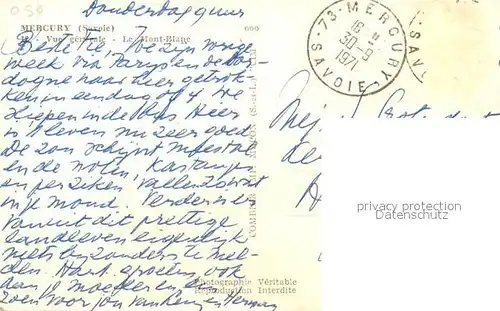 Donderdagavond
MERCURY (Savoie)
Vue générale - Le Mont-Blanc
Beste We zijn vorige
week via Parijs en de Dor-
dogne naar hier getrok-
ken in een dag of 4. We
sliepen in de bus. Hier
is 't leven nu zeer goed.
De zon schijnt meestal
en de noten, kastanjes
en perziken vallen zowat
in je mond. Verder is er
vanuit dit prettige
landleven eigenlijk
niets bijzonders te mel-
den. Hart. groeten, ook
aan je moeder en een
zoen voor jou van en Herman
COMBIER IMP. MACON (S.-et-L.)
Photographie Véritable
Reproduction Interdite
73 - MERCURY
16 H
30-9
1971
SAVOIE
SAV
Mej.
privacy protection
Datenschutz